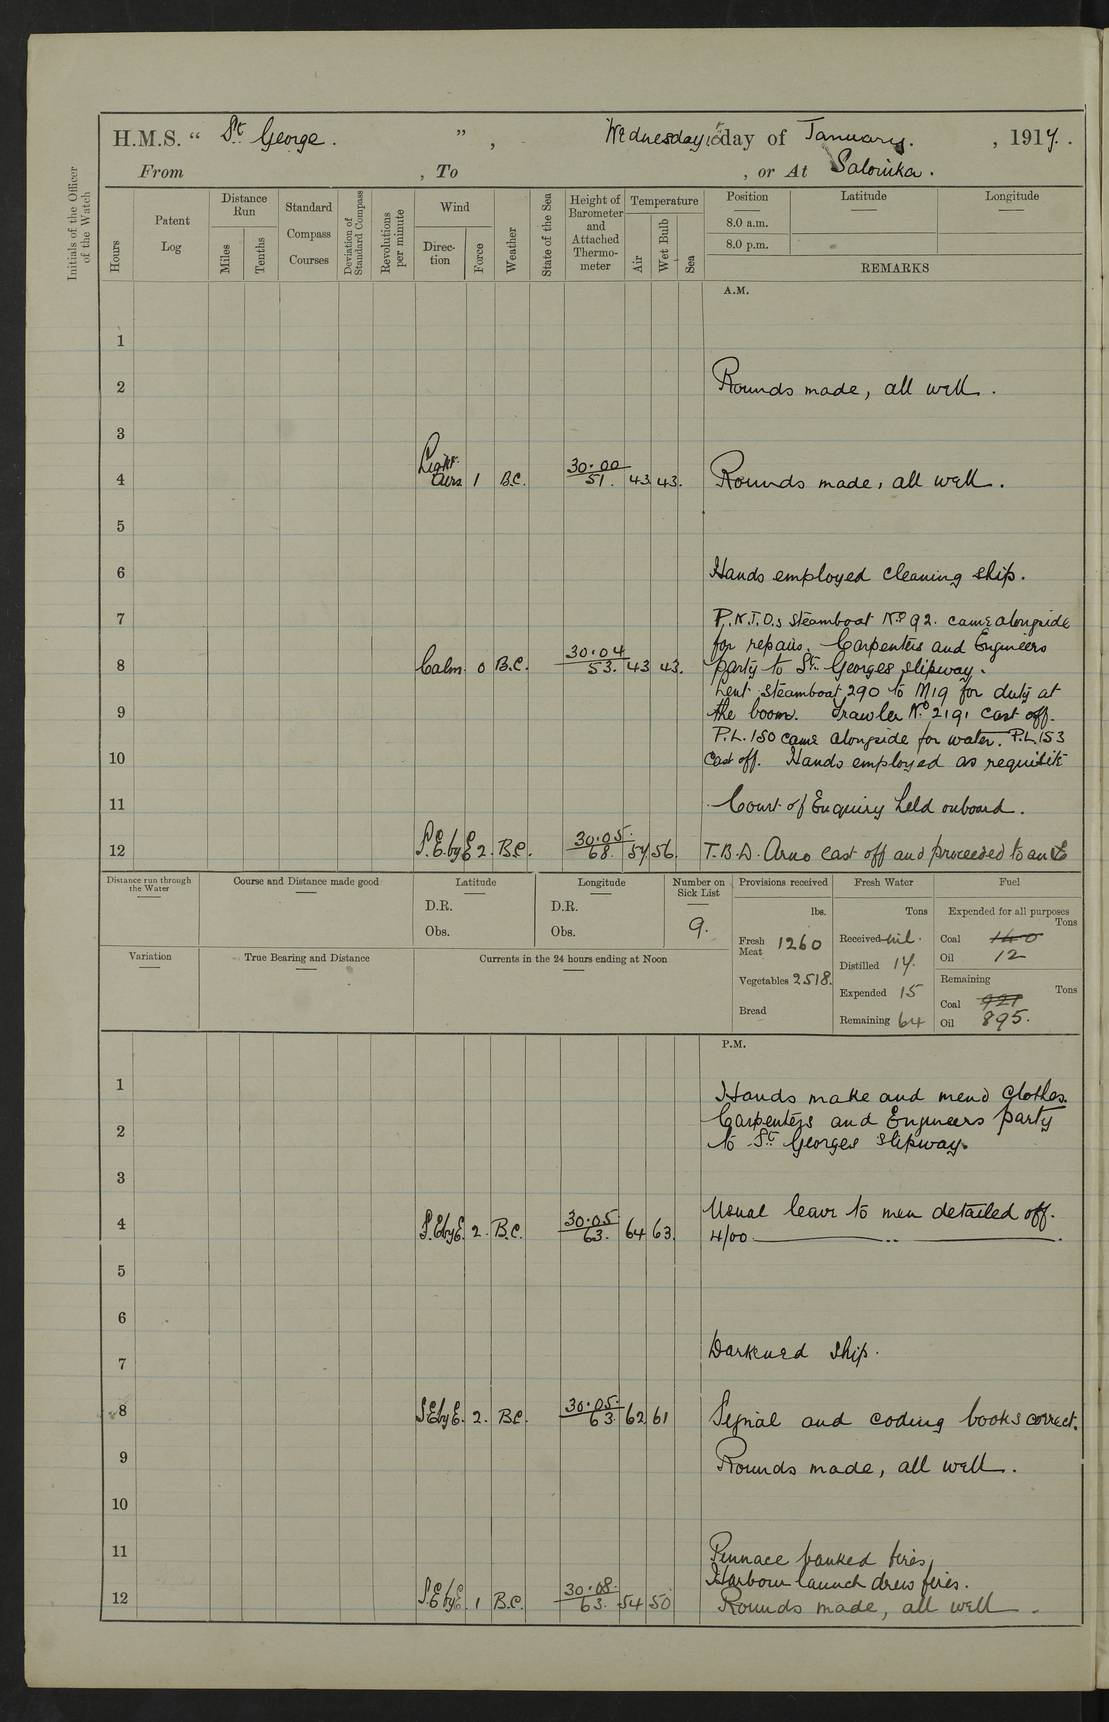 H.M.S. “ St George. ”, Wednesday 10th day of January. , 1917.
From , To , or At Salonika.
Initials of the Officer of the Watch
Hours
Patent Log
Distance Run
Miles
Tenths
Standard Compass Courses
Deviation of Standard Compass
Revolutions per minute
Wind
Direc-tion
Force
Weather
State of the Sea
Height of Barometer and Attached Thermo-meter
Temperature
Air
Wet Bulb
Sea
Position
8.0 a.m.
8.0 p.m.
Latitude
Longitude
REMARKS
A.M.
1
2 Rounds made, all well.
3
4 Light Airs 1 B.C. 30.00 51. 43 43. Rounds made, all well.
5
6 Hands employed cleaning ship.
7 P.N.T.O.s Steamboat No 92. came alongside
for repairs. Carpenters and Engineers
8 Calm. 0 B.C. 30.04 53. 43 43. party to St. Georges slipway.
Lent Steamboat 290 to M19 for duty at
9 the boom. Trawler No 2191 cast off.
P.L. 150 came alongside for water. P.L. 153
10 cast off. Hands employed as requisite
11 Court of Enquiry held onboard.
12 S.E. by E 2. B.C. 30.05. 68. 57 56. T.B.D. Arno cast off and proceeded to
Distance run through the Water
Course and Distance made good
Latitude
D.R.
Obs.
Longitude
D.R.
Obs.
Number on Sick List
9.
Provisions received
lbs.
Fresh Meat 1260
Vegetables 2518.
Bread
Fresh Water
Tons
Received nil.
Distilled 14.
Expended 15
Remaining 64
Fuel
Expended for all purposes
Tons
Coal 140
Oil 12
Remaining
Tons
Coal 921
Oil 895.
Variation
True Bearing and Distance
Currents in the 24 hours ending at Noon
P.M.
1 Hands make and mend clothes.
2 Carpenters and Engineers party
to St. Georges slipway.
3
4 S.E by E. 2. B.C. 30.05 63. 64 63. Usual leave to men detailed off.
4/00
5
6
7 Darkened ship.
8 S.E by E. 2. B.C. 30.05. 63. 62 61 Signal and coding books correct.
9 Rounds made, all well.
10
11 Pinnace banked fires,
Harbour launch drew fires.
12 S.E by E. 1 B.C. 30.08. 63. 54 50 Rounds made, all well.